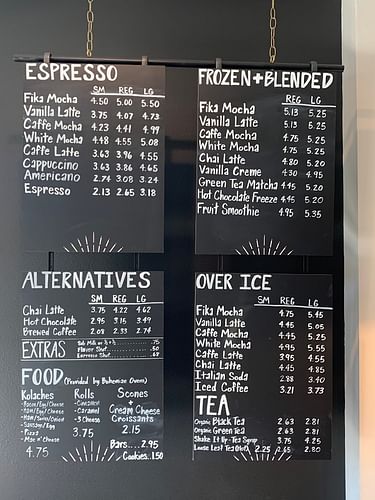 ESPRESSO
SM REG LG
Fika Mocha 4.50 5.00 5.50
Vanilla Latte 3.75 4.07 4.73
Caffe Mocha 4.23 4.41 4.99
White Mocha 4.48 4.55 5.08
Caffe Latte 3.63 3.96 4.55
Cappuccino 3.63 3.86 4.65
Americano 2.74 3.08 3.24
Espresso 2.13 2.65 3.18
FROZEN + BLENDED
REG LG
Fika Mocha 5.13 5.25
Vanilla Latte 5.13 5.25
Caffe Mocha 4.75 5.25
White Mocha 4.75 5.25
Chai Latte 4.80 5.20
Vanilla Creme 4.30 4.95
Green Tea Matcha 4.45 5.20
Hot Chocolate Freeze 4.45 5.20
Fruit Smoothie 4.95 5.35
ALTERNATIVES
SM REG LG
Chai Latte 3.75 4.22 4.62
Hot Chocolate 2.95 3.15 3.49
Brewed Coffee 2.08 2.33 2.74
EXTRAS
Sub Milk or ½ + ½ .75
Flavor Shot .50
Espresso Shot
FOOD (Provided by Bohemian Ovens)
Kolaches
-Bacon/Egg/Cheese
-Ham/Egg/Cheese
-Ham/Swiss/Onion
-Sausage/Egg
-Pizza
-Mac n' Cheese
4.75
Rolls
-Cinnamon
-Caramel
-3 Cheese
3.75
Scones
+
Cream Cheese
Croissants
2.15
Bars.... 2.95
Cookies. 1.50
OVER ICE
SM REG LG
Fika Mocha 4.75 5.45
Vanilla Latte 4.45 5.05
Caffe Mocha 4.45 5.25
White Mocha 4.95 5.55
Caffe Latte 3.95 4.55
Chai Latte 4.45 4.85
Italian Soda 2.88 3.40
Iced Coffee 3.21 3.73
TEA
Organic Black Tea 2.63 2.81
Organic Green Tea 2.63 2.81
Shake It Up-Tea Syrup 3.75 4.25
Loose Leaf Tea (Hot) 2.25 2.65 2.80